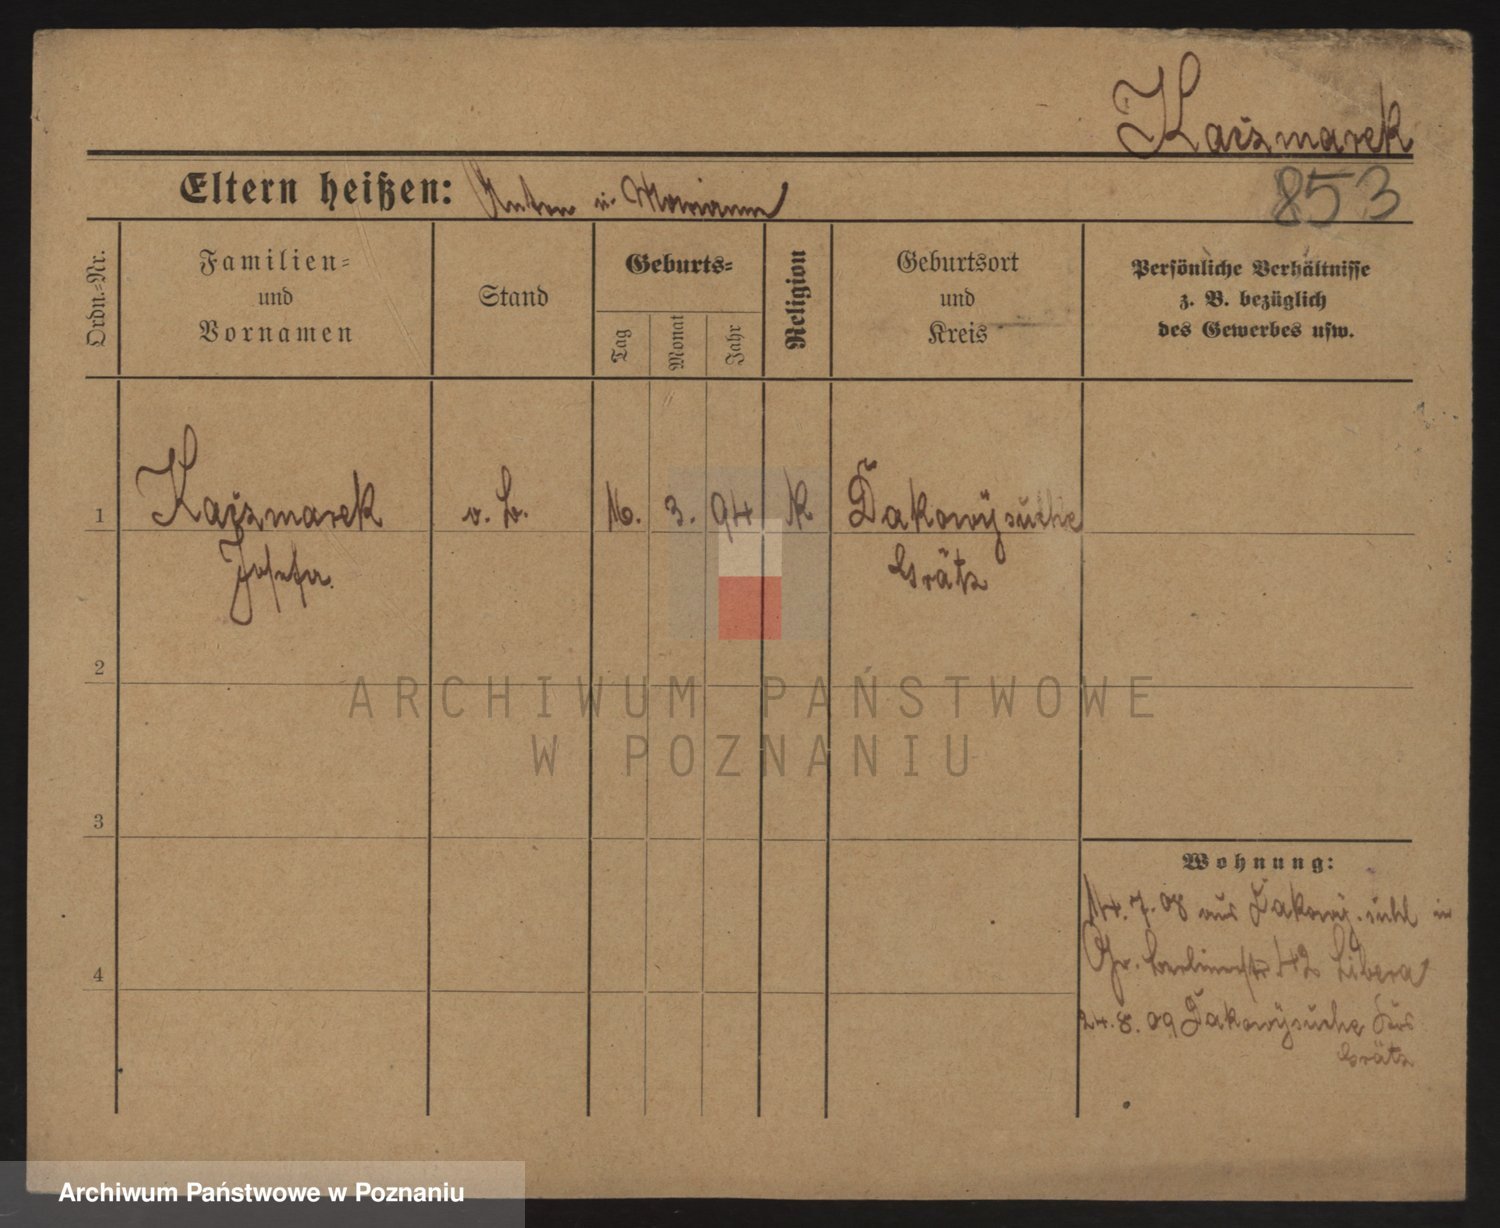 Kaižmarek
Eltern heißen: Anton u. Mariann
853
Ordn.-Nr.
Familien- und Vornamen
Stand
Geburts-
Tag
Monat
Jahr
Religion
Geburtsort und Kreis
Persönliche Verhältnisse
z. B. bezüglich
des Gewerbes usw.
1 Kaižmarek o. b. 16. 3. 94 K Dakowÿ suche
Josefa. Grätz
2
3
4
Wohnung:
14. 7. 08 aus Dakowÿ. in
Gr. Berlinerstr 42 Libera
24. 8. 09 Dakowÿsuche
Grätz
ARCHIWUM PAŃSTWOWE
W POZNANIU
Archiwum Państwowe w Poznaniu